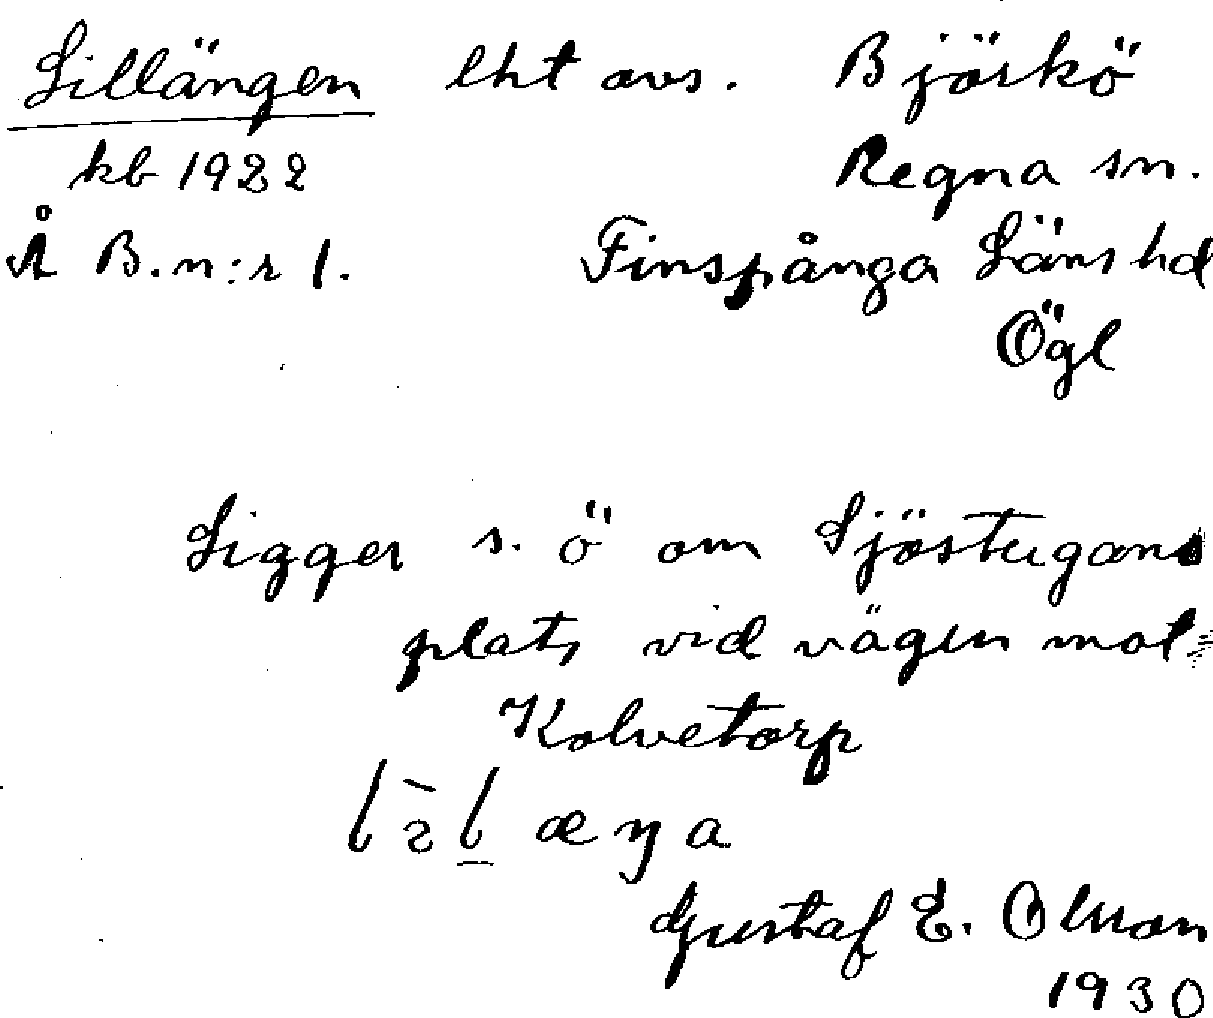 Lillängen lht avs. Björkö
kb 1922 Regna sn.
Å B.n:r 1. Finspånga Läns hd
Ögl
Ligger s. ö om Sjöstugans
plats vid vägen mot
Kolvetorp
Gustaf E. Olsson
1930